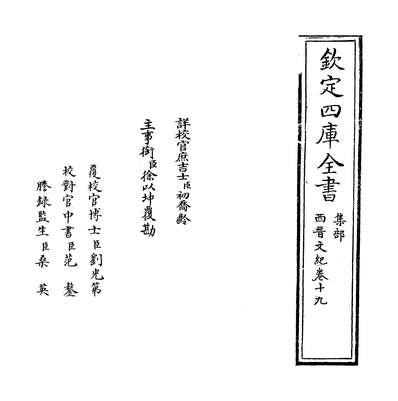 欽定四庫全書
集部
西晉文紀卷十九
詳校官庶吉士臣初喬齡
主事銜臣徐以坤覆勘
覆校官博士臣劉光第
校對官中書臣范鏊
謄錄監生臣桑英